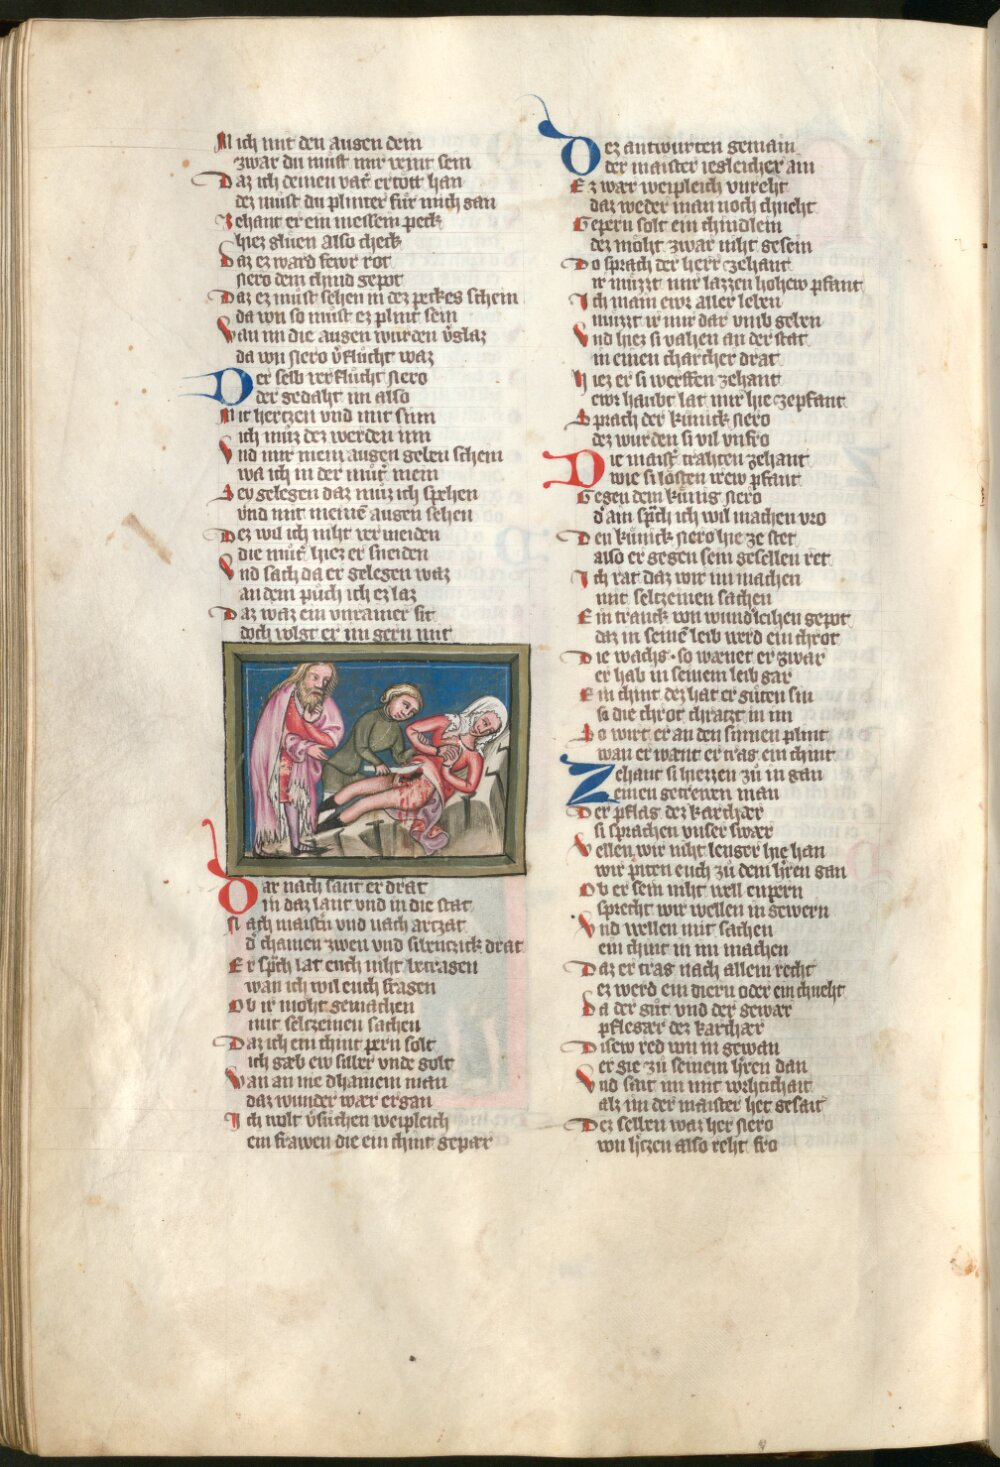 Mich mit den augen dem
zwar du must mir vejnt sein
Daz ich deinen vat̄ ertött han
dez must du plinter für mich gan
Zehant er ein messein peck
hiez glüen also check
Daz ez ward fewr rot
nero dem chind gepot
Daz ez must sehen in dez peckes schein
da von so must ez plint sein
Wan im die augen wurden v̄glaz
da von nero v̄flücht waz
Der selb verflücht nero
der gedaht im also
Mit hertzen vnd mit sinn
ich muz dez werden inn
Vnd mir mein augen geben schein
wa ich in der mut̄ mein
Sey gelegen daz muz ich spehen
vnd mit meinē augen sehen
Dez wil ich niht vermeiden
die mut̄ hiez er sneiden
Vnd sach da er gelegen waz
an dem püch ich ez laz
Daz waz ein vnrainer sit
doch volgt er im gern mit
Dar nach sant er drat
in daz lant vnd in die stat
Nach maistn̄ vnd nach artzat
d̄ chamen zwen vnd sibentzick drat
Er sp̄ch lat euch niht betragen
wan ich wil euch fragen
Ob ir möht gemachen
mit seltzeinen sachen
Daz ich ein chint pern solt
ich gæb ew silber vnde golt
Wan an me dhainem man
daz wunder wær ergan
Ich wolt v̄suchen weipleich
ein frawen die ein chint gepær
Dez antwurten gemain
der maister iegleicher ain
Ez wær weipleich vnreht
daz weder man noch chneht
Gepern solt ein chindlein
dez möht zwar niht gesein
Do sprach der herr zehant
ir müzzt mir lazzen hohew pfant
Ich main ewr aller leben
müzzt ir mir dar vmb geben
Vnd hiez si vahen an der stat
in einen charcher drat
Hiez er si werffen zehant
ewr haubt lat mir hie ze pfant
Sprach der künick nero
dez wurden si vil vnfro
Die maist̄ trahten zehant
wie si lösten irew pfant
Gegen dem künig nero
d̄ ain sp̄ch ich wil machen vro
Den künick nero hie ze stet
also er gegen sein gesellen ret
Ich rat daz wir im machen
mit seltzeinen sachen
Ein tranck von wund̄leihen gepot
daz in seinē leib werd ein chrot
Die wachs · so wænet er zwar
er hab in seinem leib gar
Ein chint dez hat er güten sin
si die chrot chratzt in im
So wirt er an den sinnen plint
wan er wænt er trag ein chint
Zehant si hiezzen zü in gan
einen getrewen man
Der pflag dez karchær
si sprachen vnser swær
Wellen wir niht lenger hie han
wir piten euch zü dem h̄ren gan
Ob er sein niht well enpern
sprecht wir wellen in gewern
Vnd wellen mit sachen
ein chint in im machen
Daz er trag nach allem recht
ez werd ein diern oder ein chneht
Da der güt vnd der gewær
pflegær dez karchær
Disew red von in gewan
er gie zü seinem h̄ren dan
Vnd sait im mit worhtichait
alz im der maister het gesait
Dez selben waz her nero
von h̄tzen also reht fro